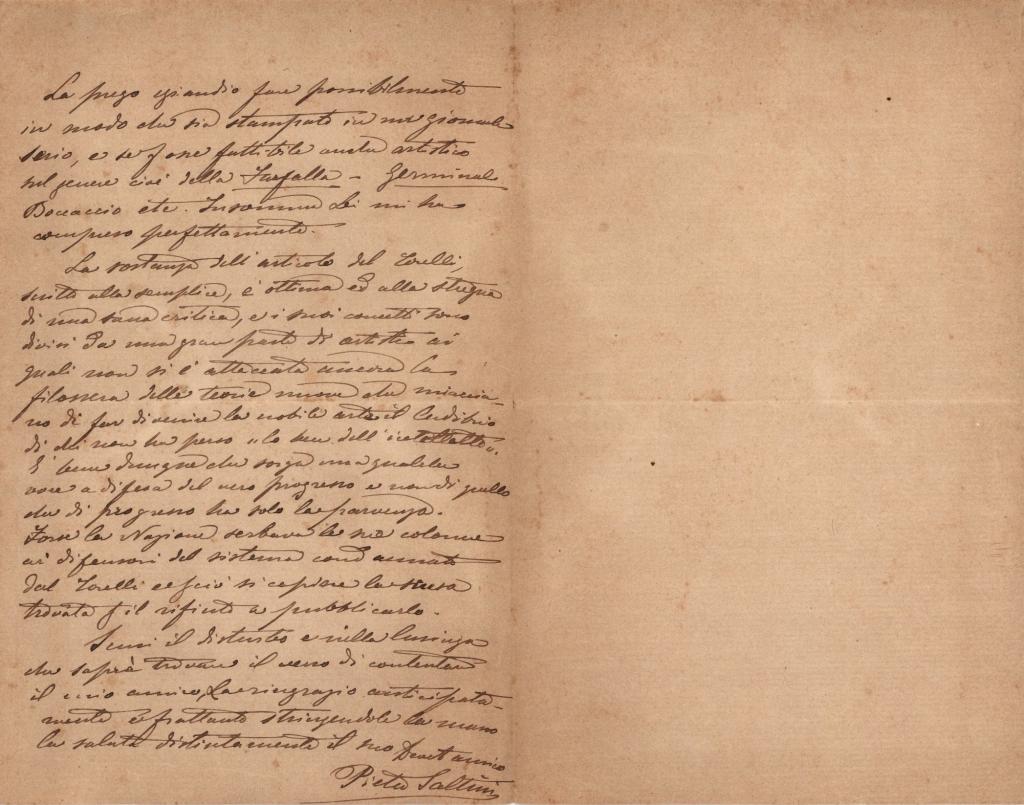 La prego eziandio fare possibilmente
in modo che sia stampato in un giornale
serio, e se fosse fattibile anche artistico
sul genere cioè della Farfalla - Germinal
Boccaccio etc. Insomma Lei mi ha
compreso perfettamente.
La sostanza dell'articolo del Torelli,
scritto alla semplice, è ottima ed alla stregua
di una sana critica, e i suoi concetti sono
divisi da una gran parte di artisti ai
quali non si è attaccata ancora la
filossera delle teorie nuove che minaccia-
no di far divenire la nobile arte il ludibrio
di chi non ha perso "lo ben dell'intelletto".
È bene dunque che sorga una qualche
voce a difesa del vero progresso e non di quello
che di progresso ha solo la parvenza.
Forse la Nazione serbava le sue colonne
ai difensori del sistema condannato
dal Torelli e ciò si capisce la scusa
trovata p il rifiuto a pubblicarlo.
Scusi il disturbo e nella lusinga
che saprà trovare il verso di contentare
il mio amico, La ringrazio anticipata-
mente e frattanto stringendole la mano
la saluta distintamente il suo Devot amico
Pietro Saltini